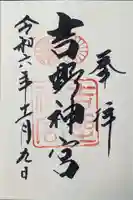 奉拝
吉野神宮
令和六年十一月九日